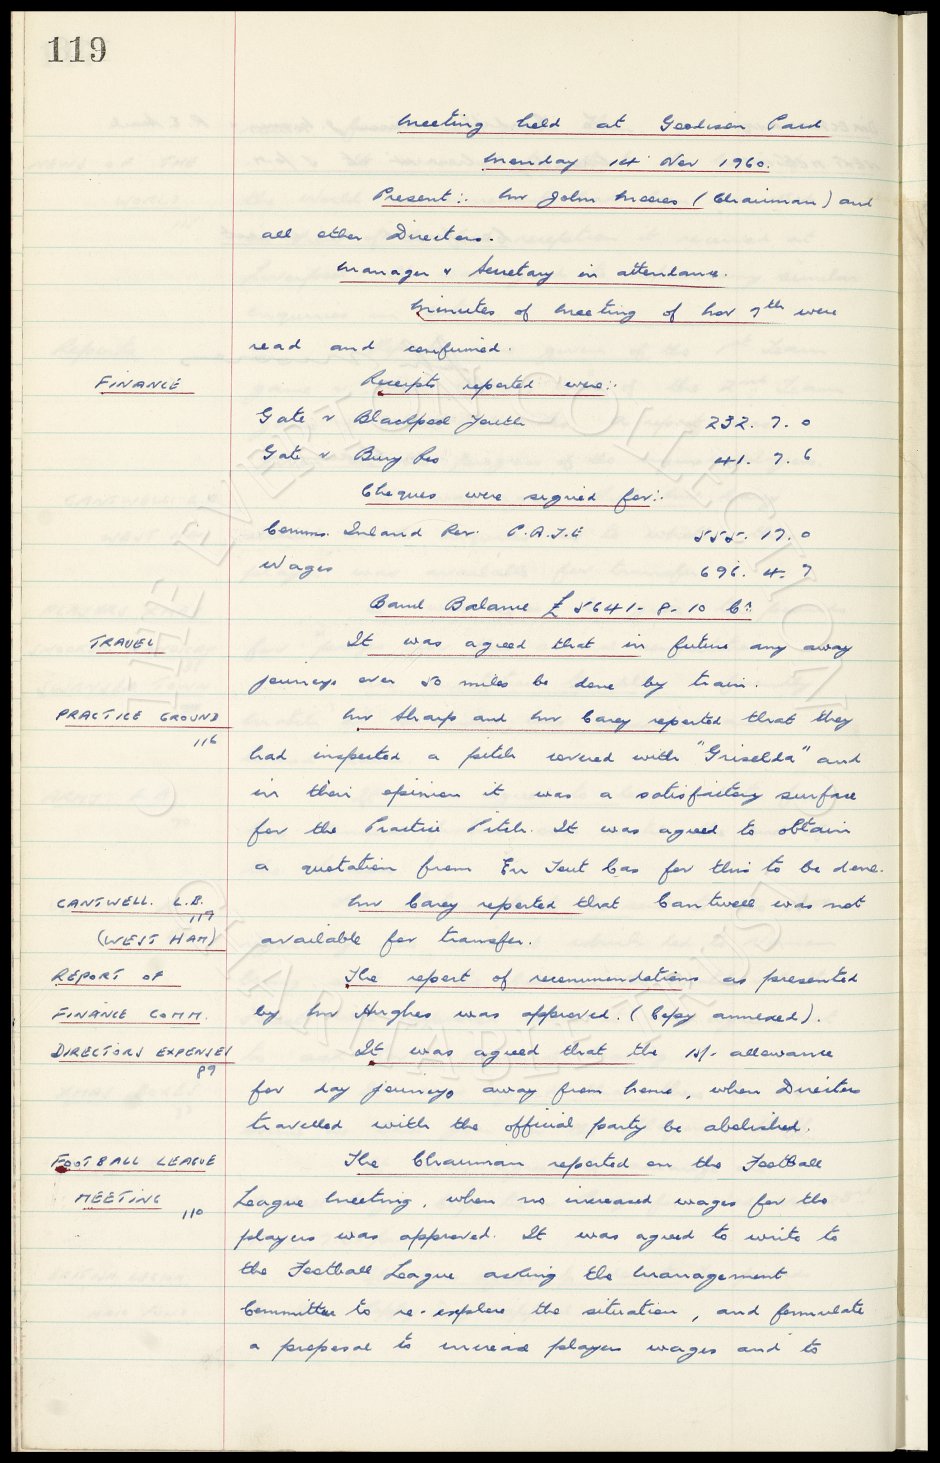 119
Meeting held at Goodison Park
Monday 14 Nov 1960.
Present:- Mr John Moores (Chairman) and
all other Directors.
Manager & Secretary in attendance.
Minutes of Meeting of Nov 7th were
read and confirmed.
FINANCE Receipts reported were:-
Gate v Blackpool Youth 232. 7. 0
Gate v Bury Res 41. 7. 6
Cheques were signed for:-
Comms. Inland Rev. P.A.Y.E 555. 17. 0
Wages 696. 4. 7
Bank Balance £5641-8-10 Cr
TRAVEL It was agreed that in future any away
journeys over 50 miles be done by train.
PRACTICE GROUND Mr Sharp and Mr Carey reported that they
116
had inspected a pitch covered with "Griselda" and
in their opinion it was a satisfactory surface
for the Practice Pitch. It was agreed to obtain
a quotation from En Tout Cas for this to be done.
CANTWELL. L.B. Mr Carey reported that Cantwell was not
117
(WEST HAM) available for transfer.
REPORT OF The report of recommendations as presented
FINANCE COMM. by Mr Hughes was approved. (Copy annexed).
DIRECTORS EXPENSES It was agreed that the 15/- allowance
89
for day journeys away from home, when Directors
travelled with the official party be abolished.
FOOTBALL LEAGUE The Chairman reported on the Football
MEETING League Meeting, when no increased wages for the
110
players was approved. It was agreed to write to
the Football League asking the Management
Committee to re-explore the situation, and formulate
a proposal to increase players wages and to
THE EVERTON COLLECTION
CHARITABLE TRUST